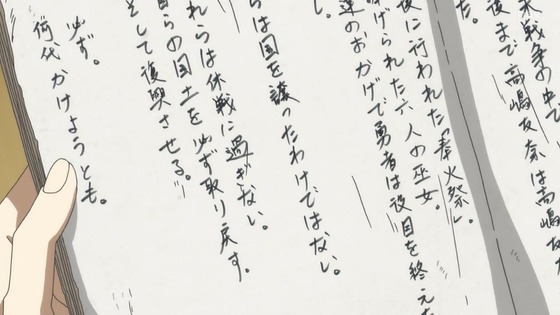 戦争の中で
後まで高嶋友奈は高嶋友奈
た。
後に行われた「奉火祭」。
げられた六人の巫女。
達のおかげで勇者は役目を終えた
し。
らは国を譲ったわけではない。
れらは休戦に過ぎない。
らの国土を必ず取り戻す。
として復興させる。
必ず。
何代かけようとも。